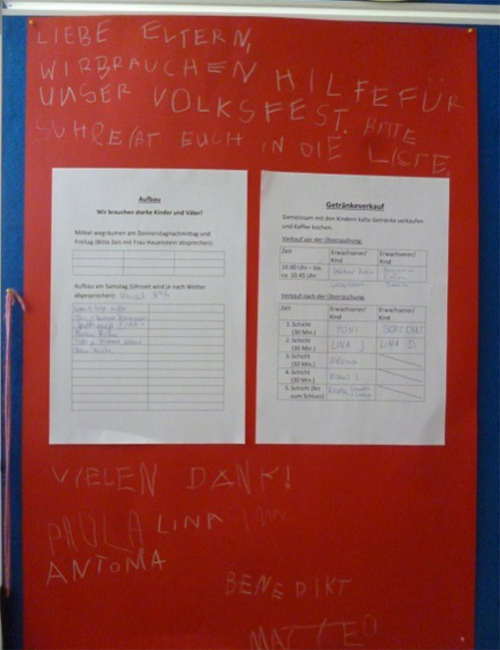 LIEBE ELTERN,
WIR BRAUCHEN HILFE FÜR
UNSER VOLKSFEST. BITTE
SCHREIBT EUCH IN DIE LISTE.
Aufbau
Wir brauchen starke Kinder und Väter!
Möbel wegräumen am Donnerstagnachmittag und
Freitag (Bitte Zeit mit Frau Hauenstein absprechen)
Aufbau am Samstag (Uhrzeit wird je nach Wetter
abgesprochen)
Getränkeverkauf
Gemeinsam mit den Kindern kalte Getränke verkaufen
und Kaffee kochen.
Verkauf vor der Überraschung:
Zeit Erwachsener/ Kind Erwachsener/ Kind
10.00 Uhr – bis
ca. 10.45 Uhr
Verkauf nach der Überraschung:
Zeit Erwachsener/ Kind Erwachsener/ Kind
1. Schicht (30 Min.) TONI
2. Schicht (30 Min.) LINA J. LINA D.
3. Schicht (30 Min.)
4. Schicht (30 Min.)
5. Schicht (bis zum Schluss)
VIELEN DANK!
PAULA LINA
ANTONIA
BENEDIKT
MATTEO